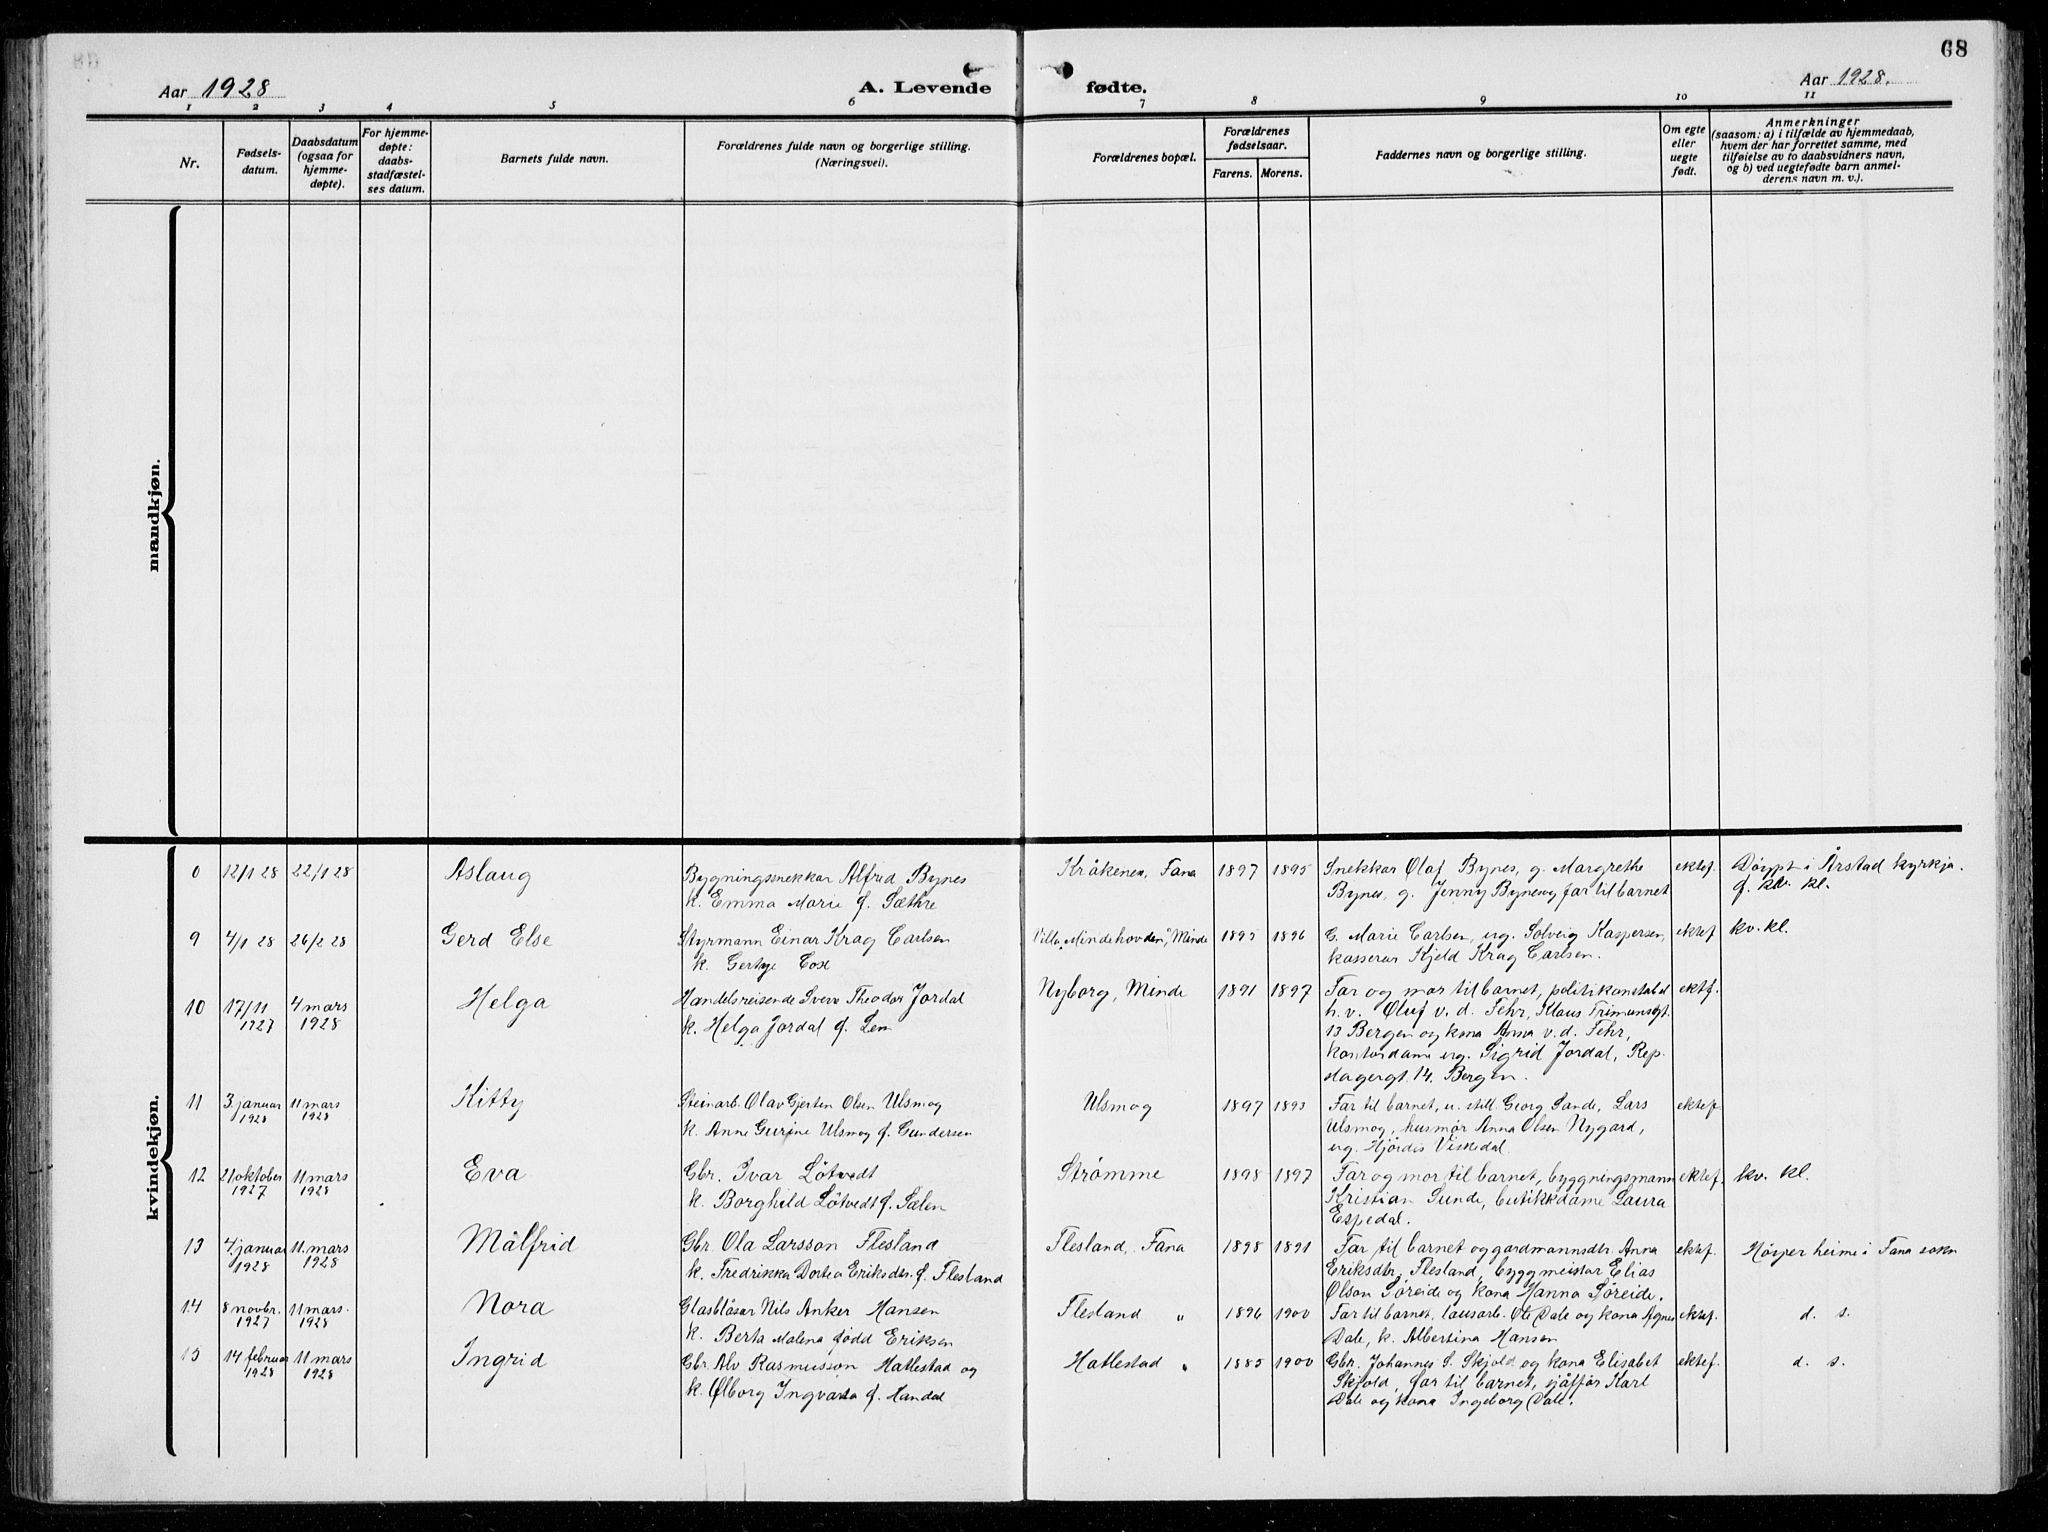 68
Aar 1928
A. Levende fødte.
Aar 1928.
1 2 3 4 5 6 7 8 9 10 11
Nr.
Fødsels-
datum.
Daabsdatum
(ogsaa for
hjemme-
døpte).
For hjemme-
døpte:
daabs-
stadfæstel-
ses datum.
Barnets fulde navn.
Forældrenes fulde navn og borgerlige stilling.
(Næringsvei).
Forældrenes bopæl.
Forældrenes
fødselsaar.
Farens. Morens.
Faddernes navn og borgerlige stilling.
Om egte
eller
uegte
født.
Anmerkninger
(saasom: a) i tilfælde av hjemmedaab,
hvem der har forrettet samme, med
tilføielse av to daabsvidners navn,
og b) ved uegtefødte barn anmel-
derens navn m. v.).
mandkjøn.
kvindekjøn.
12/1 28 22/1 28 Aslaug
Bygningssnekkar Alfred Bynes
k. Emma Marie f. Sæthre
Kråkenes, Fana 1897 1895
Snekkar Olaf Bynes, g. Margrethe
Bynes, g. Jenny Bynes og far til barnet
ektef.
Døypt i Årstad kyrkja.
9 4/1 28 26/2 28 Gerd Else
Styrmann Einar Krag Carlsen
k. Gertye Cox
Villa „Mindehovden", Minde 1895 1896
G. Marie Carlsen, ug. Solveig Kaspersen,
kasserar Kjeld Krag Carlsen.
ektef kv. kl.
10 17/11 1927 4 mars 1928 Helga
Handelsreisende Sverre Theodor Jordal
k. Helga Jordal f. Lem
Nyborg, Minde 1891 1897
Far og mor til barnet, politikonstabel
h. v. Oluf v. d. Fehr, Klaus
13 Bergen og kona Anna v. d. Fehr,
kontordame ug. Sigrid Jordal, Rep-
slagergt. 14. Bergen.
ektf.
11 3. januar 1928 11 mars 1928 Kitty
Steinarb. Olav Gjerten Olsen Ulsmog
k. Anne Gurine Ulsmog f. Gundersen
Ulsmog 1897 1893
Far til barnet, u. still. Georg Sande, Lars
Ulsmog, husmor Anna Olsen Nygard,
ug. Hjördis Viskedal.
ektef
12 21 oktober 1927 11 mars 1928 Eva
Gbr. Ivar Lötvedt
k. Borghild Lötvedt f. Sælen
Strømme 1898 1897
Far og mor til barnet, byggningsmann
Kristian Sunde, butikkdame Laura
Espedal.
ektef. kv. kl.
13 4 januar 1928 11. mars 1928 Målfrid
Gbr. Ola Larsson Flesland
k. Fredrikka Dortea Eriksdtr. f. Flesland
Flesland, Fana 1898 1891
Far til barnet og gardmannsdtr. Anna
Eriksdtr. Flesland, byggmeister Elias
Olson Søreide og kona Hanna Søreide.
ektef. Høyrer heime i Fana sokn
14 8 novbr. 1927 11 mars. 1928 Nora
Glasblåsar Nils Anker Hansen
k. Berta Malena fødd Eriksen
Flesland „ 1896 1900
Far til barnet, lausarb. Ole Dale og kona Agnes
Dale, k. Albertina Hansen
ektef. d. s.
15 14 februar 1928 11 mars 1928 Ingrid
Gbr. Alv Rasmusson Hatlestad og
k. Ølborg Ingvarda f. Handal
Hatlestad „ 1885 1900
Gbr. Johannes S. Skjold og kona Elisabet
Skjold, far til barnet, sjåffør Karl
Dale og kona Ingeborg Dale.
ektef. d. s.